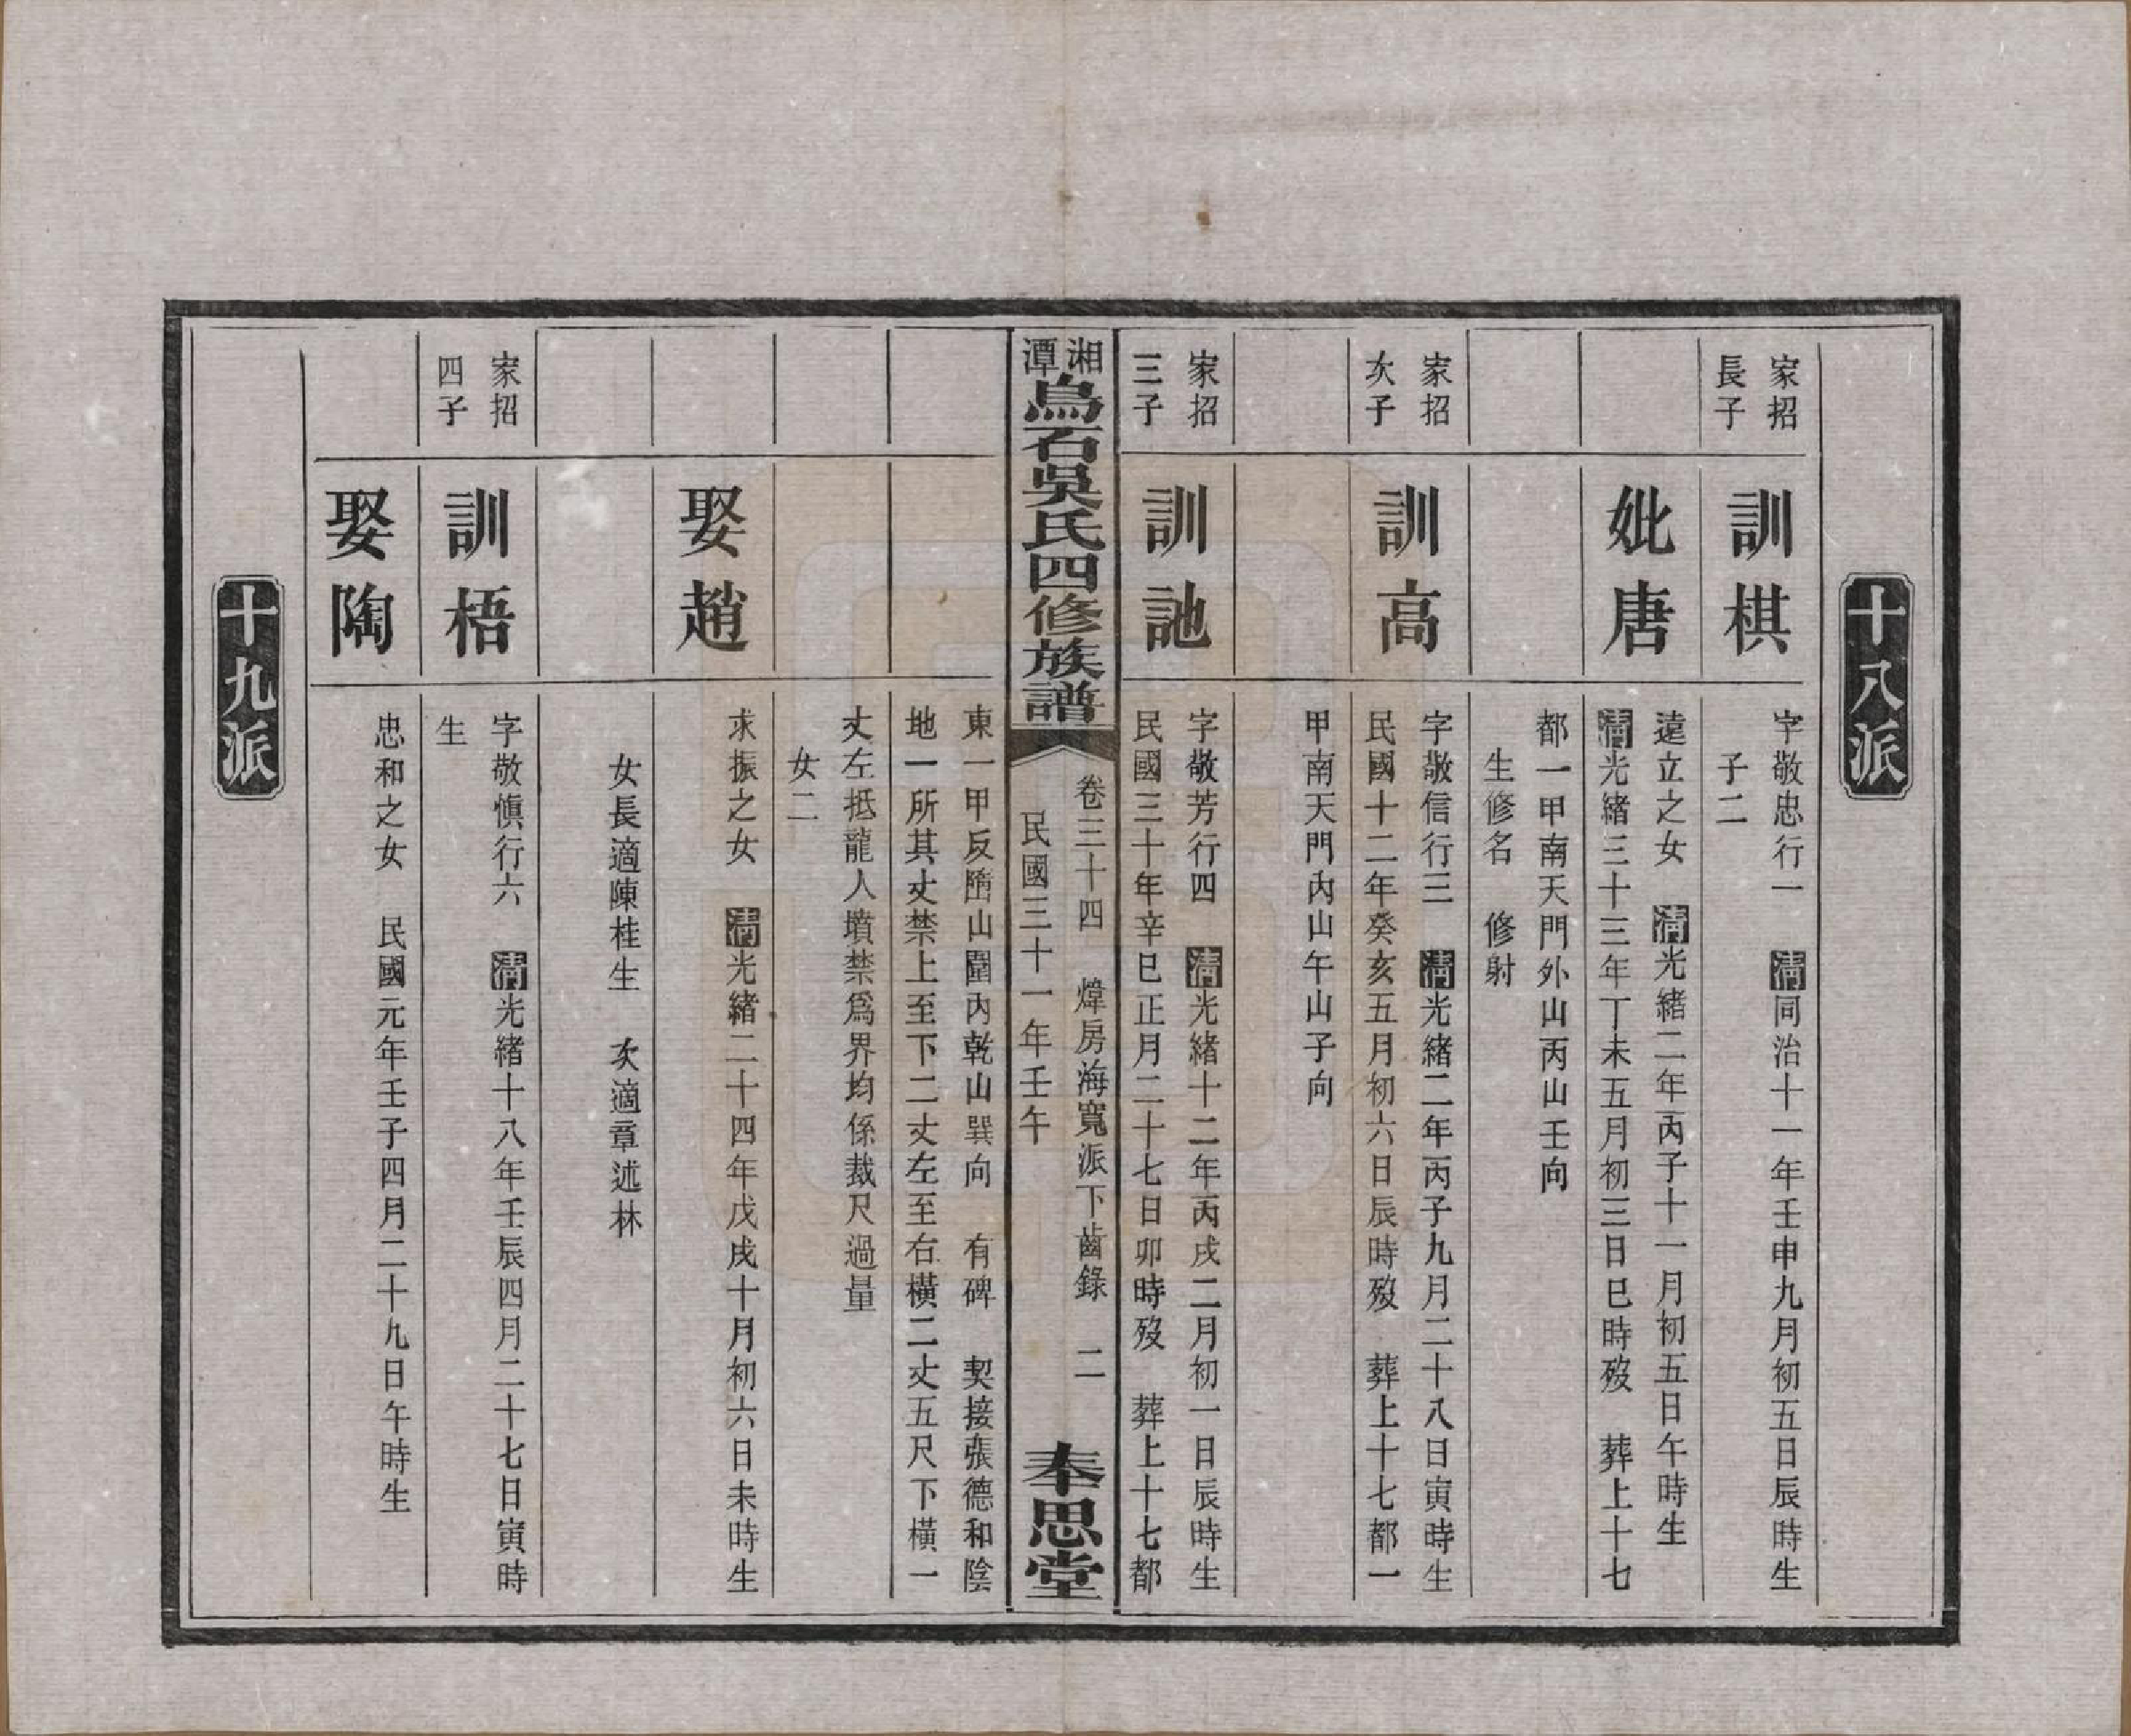 十八派
家招
長子
訓棋
字敬忠行一　清同治十一年壬申九月初五日辰時生
子二
妣唐
遠立之女　清光緒二年丙子十一月初五日午時生
清光緒三十三年丁未五月初三日巳時歿　葬上十七
都一甲南天門外山丙山壬向
生修名　修射
家招
次子
訓高
字敬信行三　清光緒二年丙子九月二十八日寅時生
民國十二年癸亥五月初六日辰時歿　葬上十七都一
甲南天門內山午山子向
家招
三子
訓訑
字敬芳行四　清光緒十二年丙戌二月初一日辰時生
民國三十年辛巳正月二十七日卯時歿　葬上十七都
湘潭烏石吳氏四修族譜
卷三十四　煒房海寬派下齒錄　二
民國三十一年壬午
奉思堂
東一甲反墮山圍內乾山巽向　有碑　契接張德和陰
地一所其丈禁上至下二丈左至右橫二丈五尺下橫一
丈左抵龍人墳禁爲界均係裁尺過量
女二
娶趙
求振之女　清光緒二十四年戊戌十月初六日未時生
女長適陳桂生　次適章述林
家招
四子
訓梧
字敬慎行六　清光緒十八年壬辰四月二十七日寅時
生
娶陶
忠和之女　民國元年壬子四月二十九日午時生
十九派